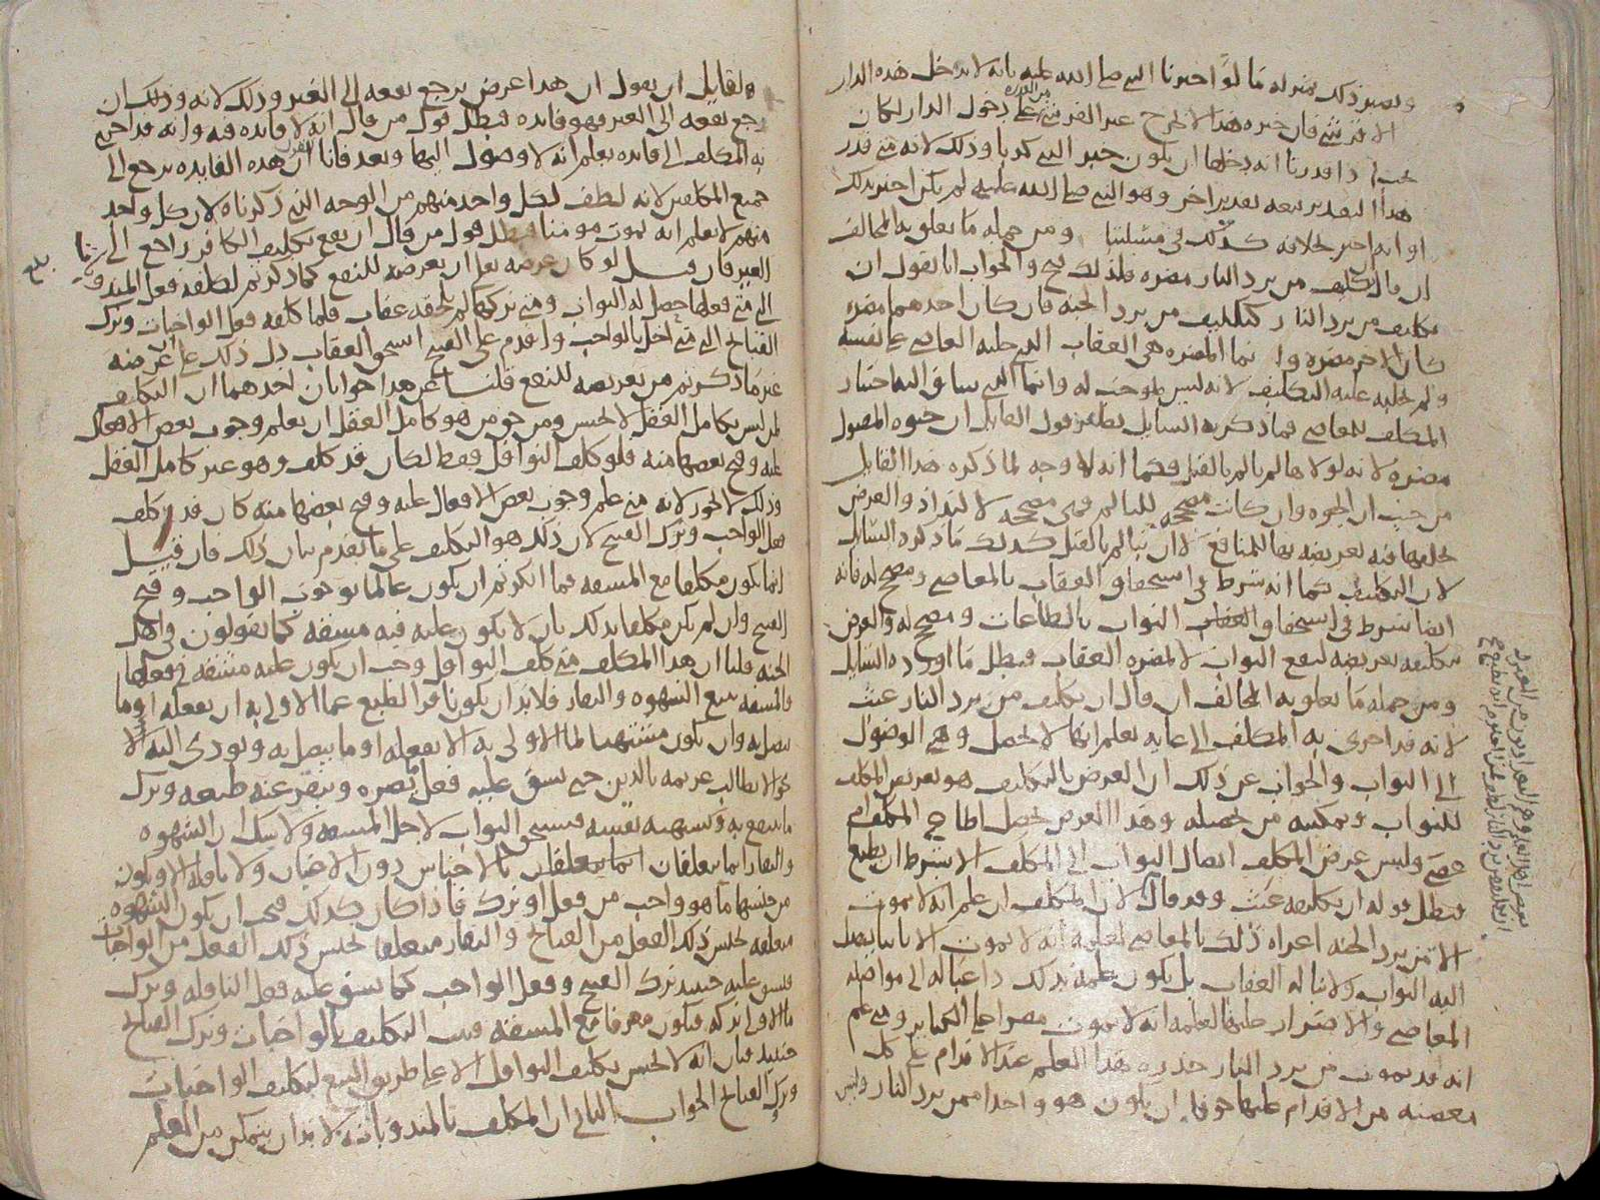 ويصير ذلك بمنزله ما لو اخبرنا النبي صلى الله عليه بانه لا يدخل هذه الدار
الا قرشي فان خبره هذا لا يخرج غير القرشي من القدرة على دخول الدار لكان
اذا قدرنا انه دخلها ان يكون خبر النبي كذبا وذلك لانه متى قدر
هذا التقدير تبعه تقدير اخر وهو النبي صلى الله عليه لم يكن اخبر بذلك
او انه اخبر بخلافه كذلك في مسئلتنا ومن جمله ما تعلق به المخالف
ان قال تكليف من يرد النار مضره فلذلك قبح والجواب انا نقول ان
تكليف من يرد النار كتكليف من يرد الجنه فان كان احدهما مضره
كان الاخر مضره وانما المضره هي العقاب الذي جلبه العاصي على نفسه
ولم يجلبه عليه التكليف لانه ليس بموجب له وانما النبي ساق اليه اختيار
المكلف للمعاصي فما ذكره السايل نظير قول القايل ان حيوه المقتول
مضره لانه لولاها لم يالم بالقتل فكما انه لا وجه لما ذكره هذا القايل
من حيث ان الحيوه وان كانت مصححه للتالم فهي مصححه لالتذاذ والغرض
بخلقها فيه تعريضه بها للمنافع لا ان يتالم بالقتل كذلك ما ذكره السايل
لان التكليف كما انه شرط في استحقاق العقاب بالمعاصي ومصحح له فانه
ايضا شرط في استحقاق الثواب بالطاعات ومصحح له والغرض
بتكليفه تعريضه لنفع الثواب لا لمضره العقاب فبطل ما اورده السايل
ومن جمله ما تعلق به المخالف ان قال ان تكليف من يرد النار عبث
لانه قد اجرى به المكلف الى غايه يعلم انها لا تحصل وهي الوصول
الى الثواب والجواب عن ذلك ان الغرض بالتكليف هو تعريض المكلف
للثواب وتمكينه من تحصيله وهذا الغرض يحصل اطاع المكلف ام
عصى وليس غرض المكلف ايصال الثواب الى المكلف الا بشرط ان يطيع
فبطل قوله ان تكليفه عبث وقد قال لان المكلف ان علم انه لا يموت
الا من يرد الجنه اغراه ذلك بالمعاصي لعلمه انه لا يموت الا تايبا يصل
اليه الثواب ولا يناله العقاب بل يكون علمه بذلك داعيا له الى مواقعه
المعاصي والاصرار عليها لعلمه انه لا يموت مصرا على الكباير ومتى علم
انه قد يموت من يرد النار حذره هذا العلم عن الاقدام على كل
معصيه من الاقدام عليها خوفا ان يكون هو واحدا ممن يرد النار وليس
ولقايل ان يقول ان هذا غرض يرجع نفعه الى الغير وذلك لانه وذلك ان
رجع نفعه الى الغير فهو فايده فبطل قول من قال انه لا فايده فيه وانه قد اجرى
به المكلف الى فايده يعلم انه لا وصول اليها وبعد فانا نقول ان هذه الفايده يرجع الى
جميع المكلفين لانه لطف لكل واحد منهم من الوجه الذي ذكرناه لان كل واحد
منهم لا يعلم انه يموت مومنا فبطل قول من قال ان نفع تكليف الكافر راجع الى
الغير فان قيل لو كان غرضه تعالى ان يعرضه للنفع كما ذكرتم لكلفه فعل المندوبات
التي متى فعلها حصل له الثواب ومتى تركها لم يلحقه عقاب فلما كلفه فعل الواجبات وترك
القبائح التي متى اخل بالواجب واقدم على القبيح استحق العقاب دل ذلك على غرضه
غير ما ذكرتم من تعريضه للنفع قلنا عن هذا جوابان احدهما ان التكليف
لمن ليس بكامل العقل لا يحسن ومن حق من هو كامل العقل ان يعلم وجوب بعض الافعال
عليه وقبح بعضها منه فلو كلف النوافل فقط لكان قد كلف وهو غير كامل العقل
وذلك لا يجوز لانه متى علم وجوب بعض الافعال عليه وقبح بعضها منه كان قد كلف
فعل الواجب وترك القبيح لان ذلك هو التكليف على ما تقدم بيان ذلك فان قيل
انما يكون مكلفا مع المشقه فما انكرتم ان يكون عالما بوجوب الواجب وقبح
القبيح وان لم يكن مكلفا بذلك بان لا يكون عليه فيه مشقه كما تقولون في اهل
الجنه قلنا ان هذا المكلف متى كلف النوافل وجب ان يكون عليه مشقه في فعلها
فالمشقه تتبع الشهوه والنفار فلا بد ان يكون نافر الطبع عما الاولى به ان يفعله او ما
يتصل به وان يكون مشتهيا لما الاولى به الا يفعله او ما يتصل به ويودى اليه الا
ترى الا يطالب غريمه بالدين حتى يشق عليه فعل بصره وينفر عنه طبعه وترك
ما ينتفع به وتشتهيه نفسه فيستحق الثواب لاجل المشقه ولا شك ان الشهوه
والنفار انما يتعلقان بالاجناس دون الاعيان ولا نافله الا ويكون
من جنسها ما هو واجب من فعل او ترك فاذا كان كذلك فيجب ان يكون الشهوه
متعلقه بجنس ذلك الفعل من القبائح والنفار متعلقا بجنس ذلك الفعل من الواجبات
فيشق عليه حينئذ ترك القبيح وفعل الواجب كما يشق عليه فعل النافله وترك
ما الاولى تركه فيكون معرفا مع المشقه فيثبت التكليف بالواجبات وترك القبائح
حينئذ فبان انه لا يحسن تكليف النوافل الا على طريق التبع لتكليف الواجبات
وترك القبائح الجواب الثاني ان المكلف بالمندوبات لا بد ان يتمكن من العلم
بلغ